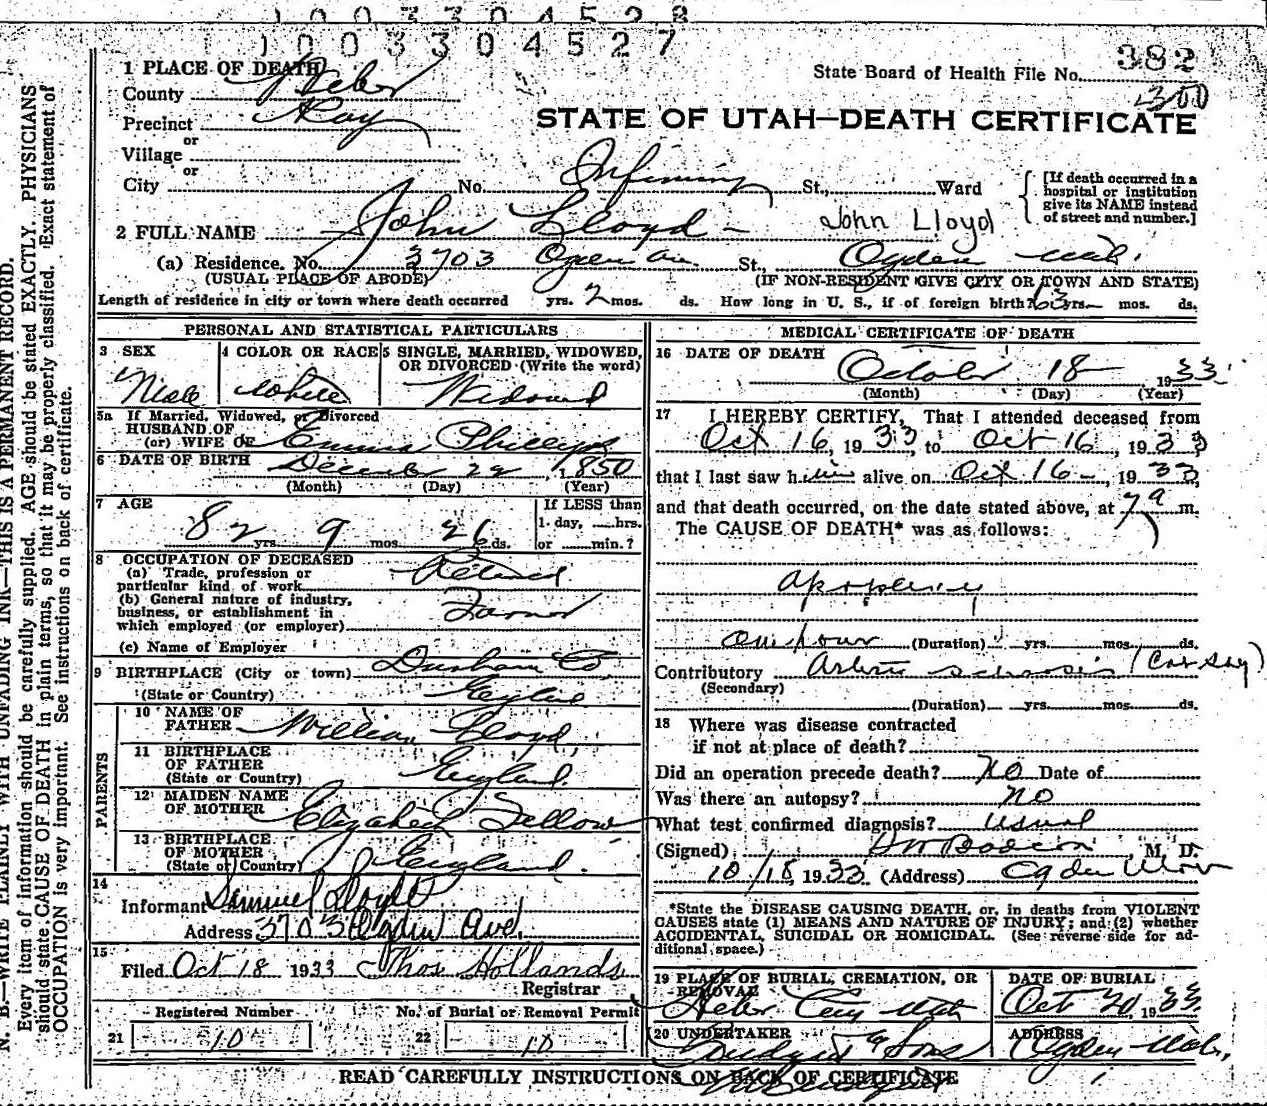 1003304528
1003304527
382
State Board of Health File No.
300
1 PLACE OF DEATH
County Weber
Precinct Roy
or
Village
or
City No. Infirmary St., Ward
[If death occurred in a hospital or institution give its NAME instead of street and number.]
STATE OF UTAH—DEATH CERTIFICATE
2 FULL NAME John Lloyd - John Lloyd
(a) Residence. No. 3703 Ogden Ave St., Ogden Utah.
(USUAL PLACE OF ABODE) (IF NON-RESIDENT GIVE CITY OR TOWN AND STATE)
Length of residence in city or town where death occurred yrs. 2 mos. ds. How long in U. S., if of foreign birth? 63 yrs. mos. ds.
PERSONAL AND STATISTICAL PARTICULARS
3 SEX
Male
4 COLOR OR RACE
White
5 SINGLE, MARRIED, WIDOWED, OR DIVORCED (Write the word)
Widowed
5a If Married, Widowed, or Divorced
HUSBAND OF
(or) WIFE OF Emma Phillips
6 DATE OF BIRTH December 22 1850
(Month) (Day) (Year)
7 AGE
82 yrs. 9 mos. 26 ds.
If LESS than
1 day, hrs.
or min.?
8 OCCUPATION OF DECEASED
(a) Trade, profession or
particular kind of work Retired
(b) General nature of industry,
business, or establishment in
which employed (or employer) Farmer
(c) Name of Employer
9 BIRTHPLACE (City or town) Durham Co
(State or Country) England
PARENTS
10 NAME OF
FATHER William Lloyd,
11 BIRTHPLACE
OF FATHER
(State or Country) England.
12 MAIDEN NAME
OF MOTHER Elizabeth Fellows
13 BIRTHPLACE
OF MOTHER
(State or Country) England.
14
Informant Samuel Lloyd
Address 3703 Ogden Ave.
15
Filed Oct 18 1933 Thos Hollands
Registrar
Registered Number
21 10
No. of Burial or Removal Permit
22 10
MEDICAL CERTIFICATE OF DEATH
16 DATE OF DEATH
October 18 1933.
(Month) (Day) (Year)
17 I HEREBY CERTIFY, That I attended deceased from
Oct 16, 1933 to Oct 16, 1933
that I last saw him alive on Oct 16-, 1933,
and that death occurred, on the date stated above, at 7 a m.
The CAUSE OF DEATH* was as follows:
apoplexy
one hour (Duration) yrs. mos. ds.
Contributory
(Secondary)
(Duration) yrs. mos. ds.
18 Where was disease contracted
if not at place of death?
Did an operation precede death? No Date of
Was there an autopsy? no
What test confirmed diagnosis? usual
(Signed) M. D.
10/18, 1933 (Address) Ogden Utah
*State the DISEASE CAUSING DEATH, or, in deaths from VIOLENT
CAUSES state (1) MEANS AND NATURE OF INJURY; and (2) whether
ACCIDENTAL, SUICIDAL OR HOMICIDAL. (See reverse side for ad-
ditional space.)
19 PLACE OF BURIAL, CREMATION, OR
REMOVAL
Heber City Utah
DATE OF BURIAL
Oct 20, 1933
20 UNDERTAKER
& Sons
ADDRESS
Ogden Utah.
READ CAREFULLY INSTRUCTIONS ON BACK OF CERTIFICATE
N. B.—WRITE PLAINLY WITH UNFADING INK—THIS IS A PERMANENT RECORD.
Every item of information should be carefully supplied. AGE should be stated EXACTLY. PHYSICIANS
should state CAUSE OF DEATH in plain terms, so that it may be properly classified. Exact statement of
OCCUPATION is very important. See instructions on back of certificate.